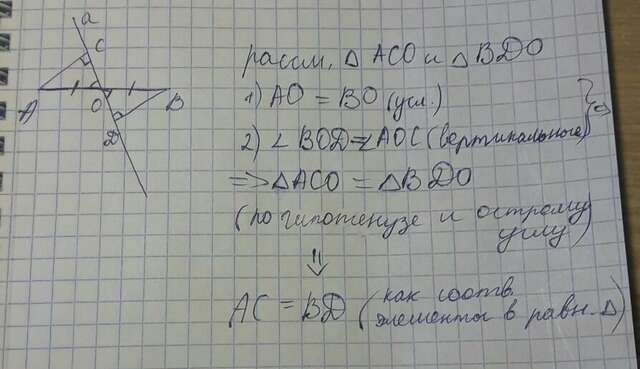 a
C
A
O
B
D
рассм. △ ACO и △ BDO
1) AO = BO (усл.)
2) ∠ BOD = ∠AOC (вертикальные)
=> △ACO = △BDO
(по гипотенузе и острому
углу)
⇓
AC = BD (как соотв.
элементы в равн. △)